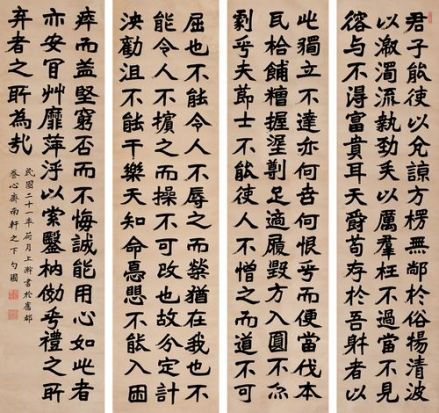 君子能使以亢諒方楞無鄙於俗楊清波
以激濁流執勁矢以厲羣枉不過當不見
容与不得富貴耳天爵苟存於吾躰者以
此獨立不達亦何苦何恨乎而便當伐本
瓦枱餔糟握埿剸足適履毀方入圓不亦
劇乎夫節士不能使人不憎之而道不可
屈也不能令人不辱之而榮猶在我也不
能令人不擯之而操不可改也故分定計
決勸沮不能干樂天知命憂懼不能入困
瘁而益堅窮否而不悔誠能用心如此者
亦安冐艸靡萍浮以索鑿枘傚乎禮之所
棄者之所為哉
民國二十一年荷月上澣書於舊都
養心齋南軒之下勺園